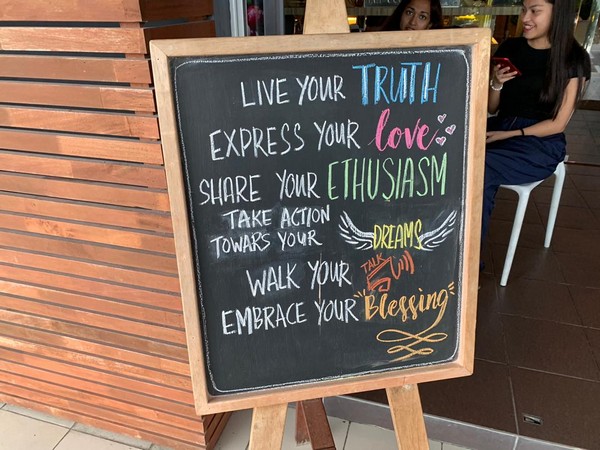 LIVE YOUR TRUTH
EXPRESS YOUR love
SHARE YOUR ETHUSIASM
TAKE ACTION
TOWARS YOUR DREAMS
WALK YOUR TALK
EMBRACE YOUR "Blessing"